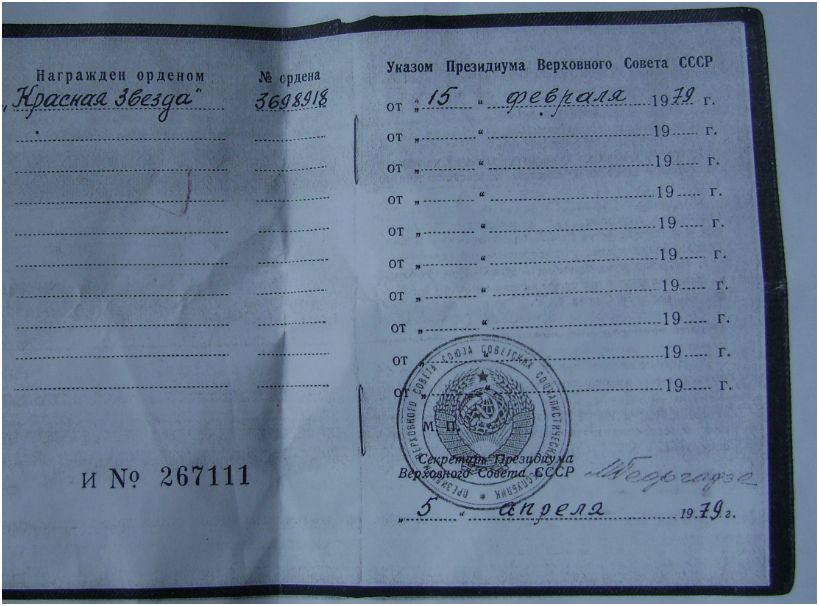 Награжден орденом № ордена
„Красная Звезда“ 3698918
И № 267111
Указом Президиума Верховного Совета СССР
от „15“ февраля 1979 г.
от „ “ 19 г.
от „ “ 19 г.
от „ “ 19 г.
от „ “ 19 г.
от „ “ 19 г.
от „ “ 19 г.
от „ “ 19 г.
от „ “ 19 г.
от „ “ 19 г.
ПРЕЗИДИУМ ВЕРХОВНОГО СОВЕТА СОЮЗА СОВЕТСКИХ СОЦИАЛИСТИЧЕСКИХ РЕСПУБЛИК
М. П.
Секретарь Президиума
Верховного Совета СССР М Георгадзе
„5“ апреля 1979 г.